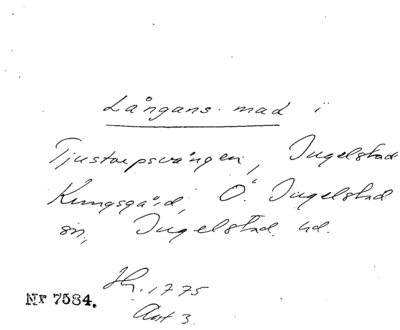 Långans mad i
Tjustorpsvången, Ingelstad
Kungsgård, Ö. Ingelstad
sn, Ingelstad hd.
Hr. 1775
Akt 3.
Nr 7584.